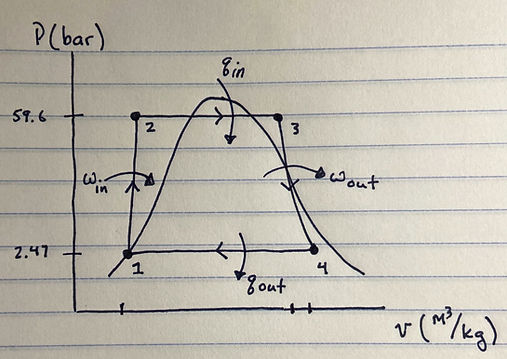 P (bar)
q in
59.6
2
3
w in
w out
2.47
1
4
q out
v (m³/kg)